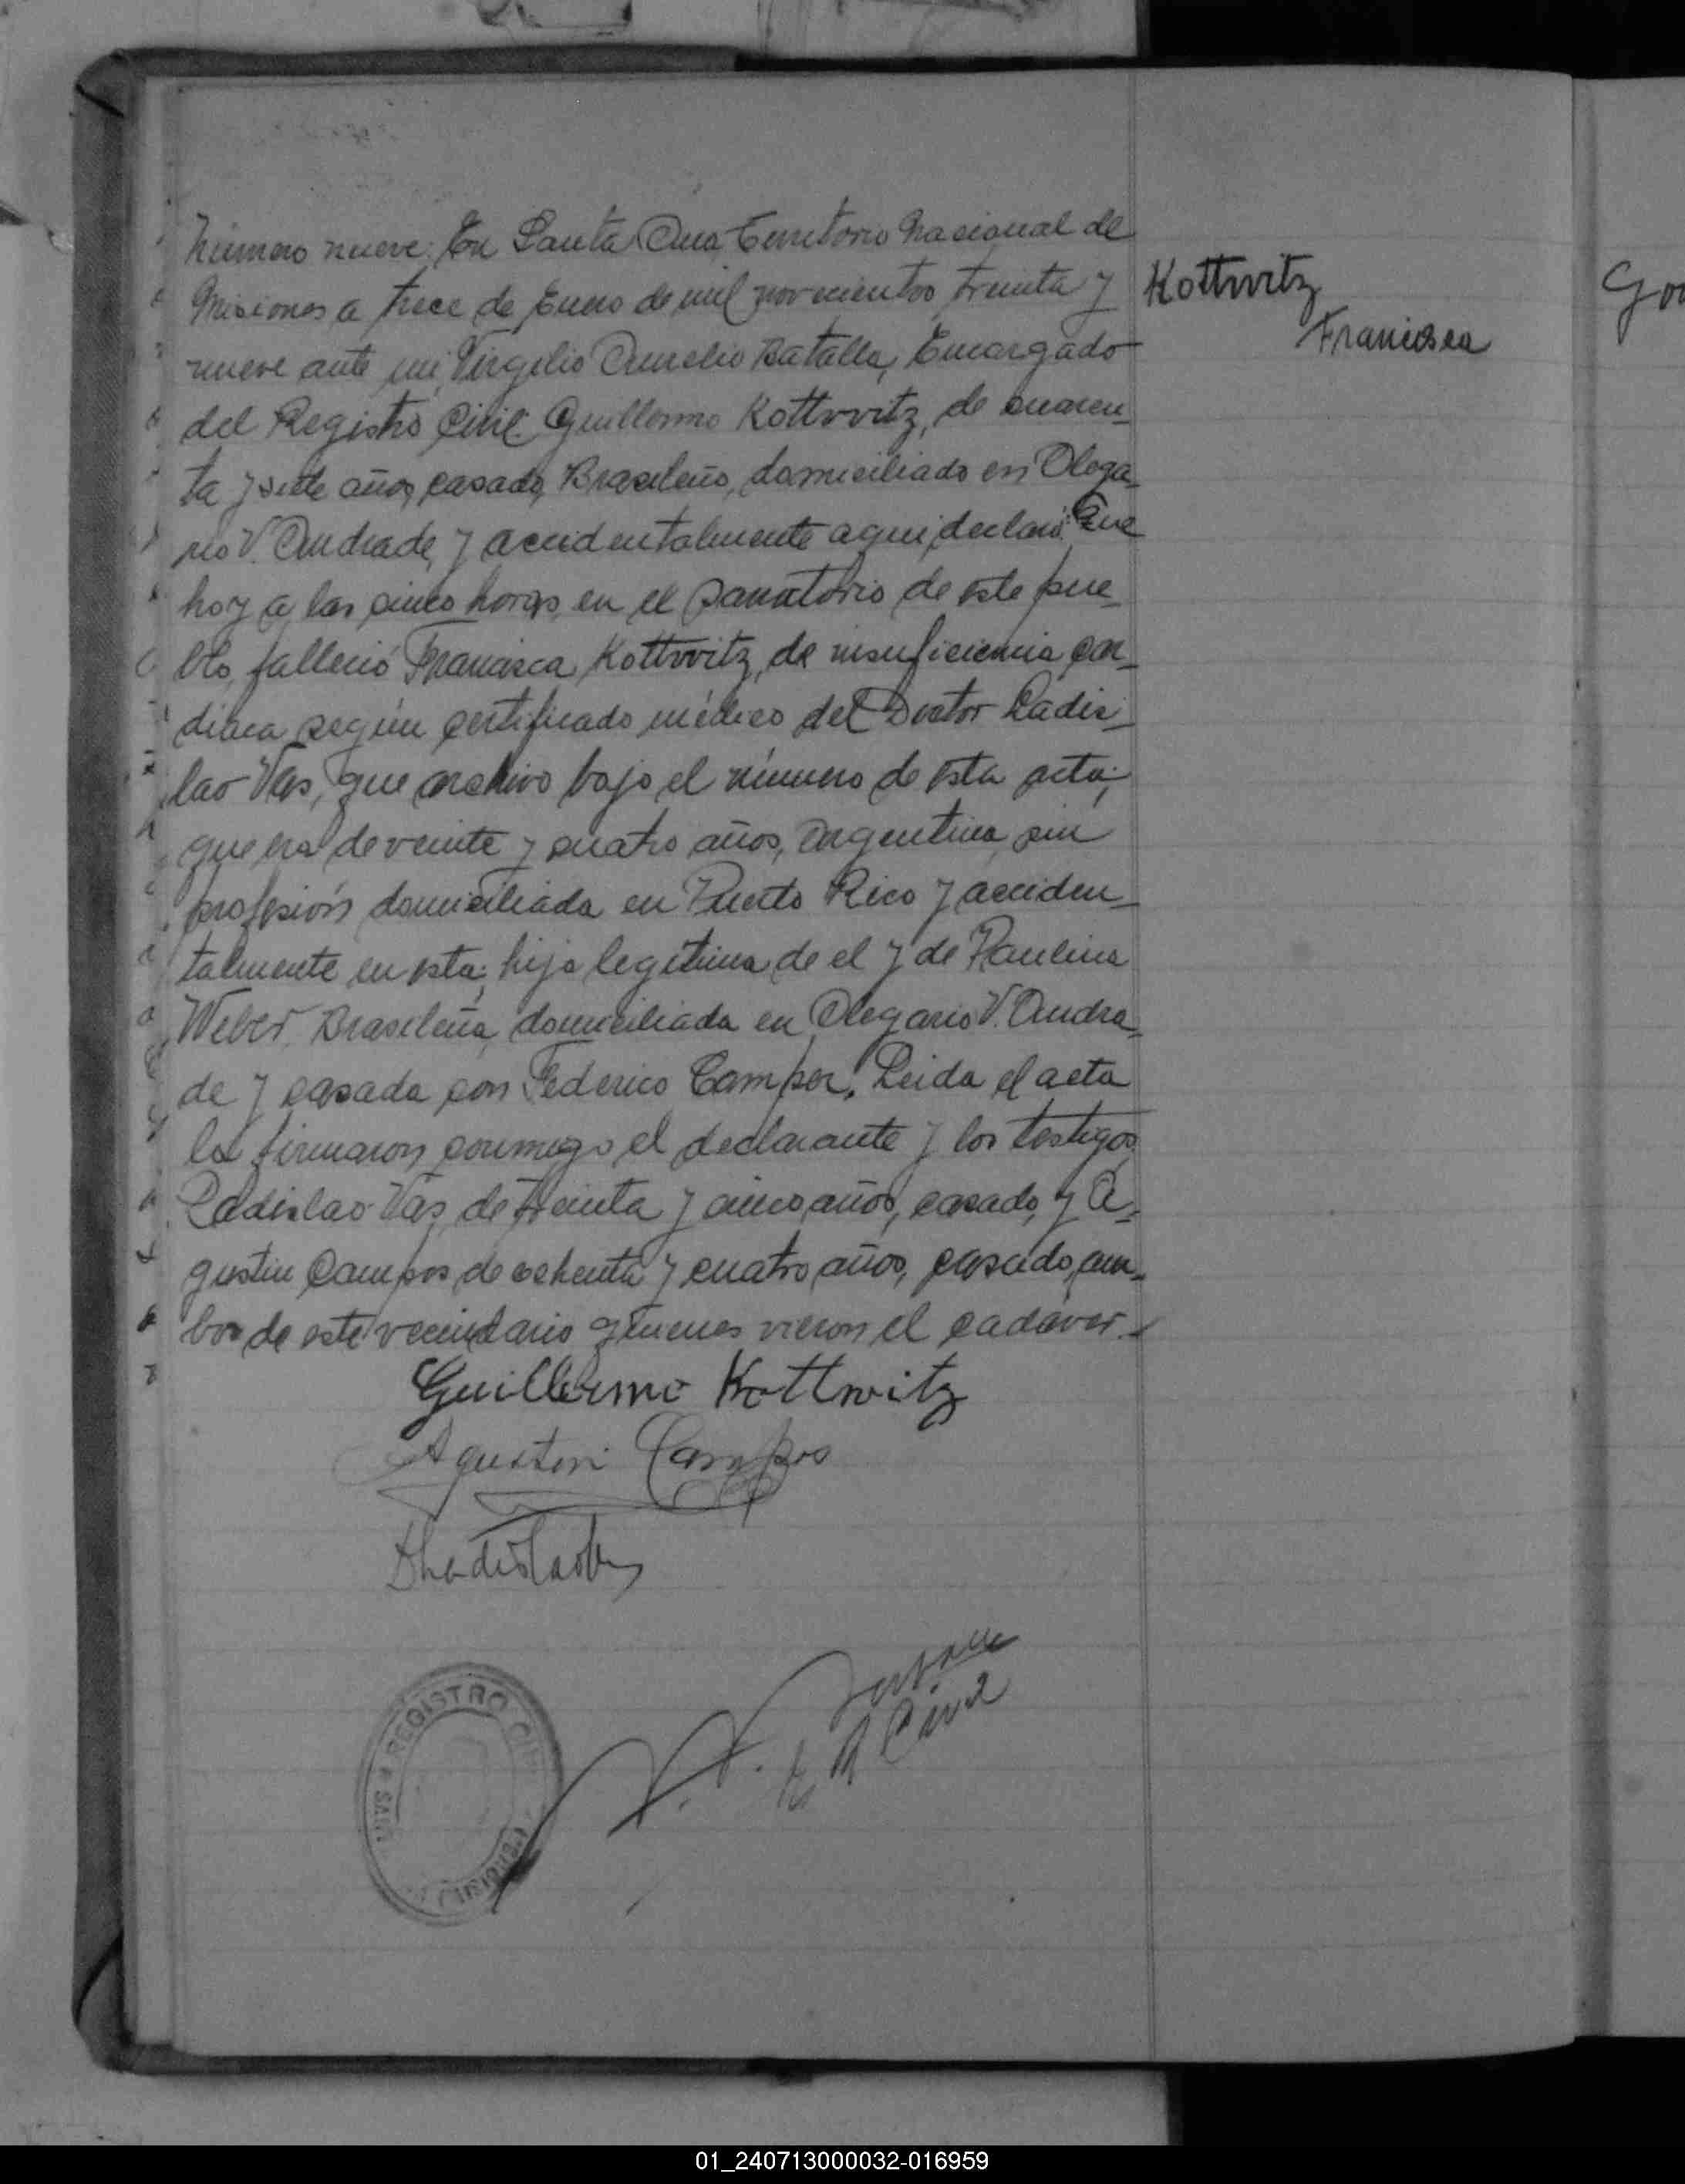 Número nueve: En Santa Ana Territorio Nacional de
Misiones a trece de Enero de mil novecientos treinta y
nueve ante mi, Virgilio Aurelio Batalla, Encargado
del Registro Civil. Guillermo Kottwitz, de cuaren_
ta y siete años, casado, Brasileño, domiciliado en Olega_
rio V. Andrade, y accidentalmente aqui, declaró: Que
hoy a las cinco horas, en el Sanatorio de este pue_
blo, falleció Francisca Kottwitz, de insuficiencia car_
diaca según certificado médico del Doctor Ladis_
lao Vas, que archivo bajo el número de esta acta;
que era de veinte y cuatro años, Argentina, sin
profesión domiciliada en Puerto Rico y acciden_
talmente en esta; hija legitima de el y de Paulina
Weber, Brasileña, domiciliada en Olegario V. Andra_
de y casada con Federico Camper. Leida el acta
la firmaron conmigo el declarante y los testigos
Ladislao Vas, de treinta y cinco años, casado, y A_
gustin Campos de ochenta y cuatro años, casado, am_
bos de este vecindario quienes vieron el cadaver._
Kottwitz
Francisca
Guillermo Kottwitz
Agustin Campos
REGISTRO CIVIL
MISIONES
R Civil
01_240713000032-016959